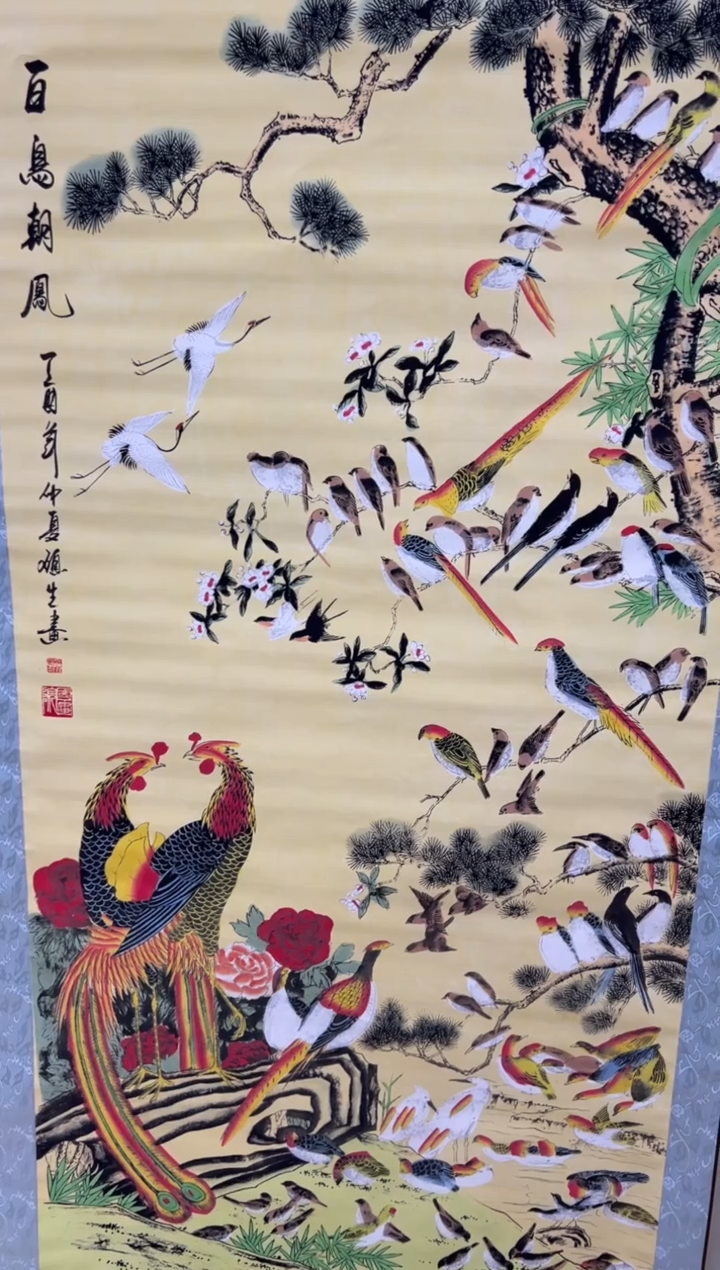 百鳥朝鳳
丁酉年仲夏猶生畫